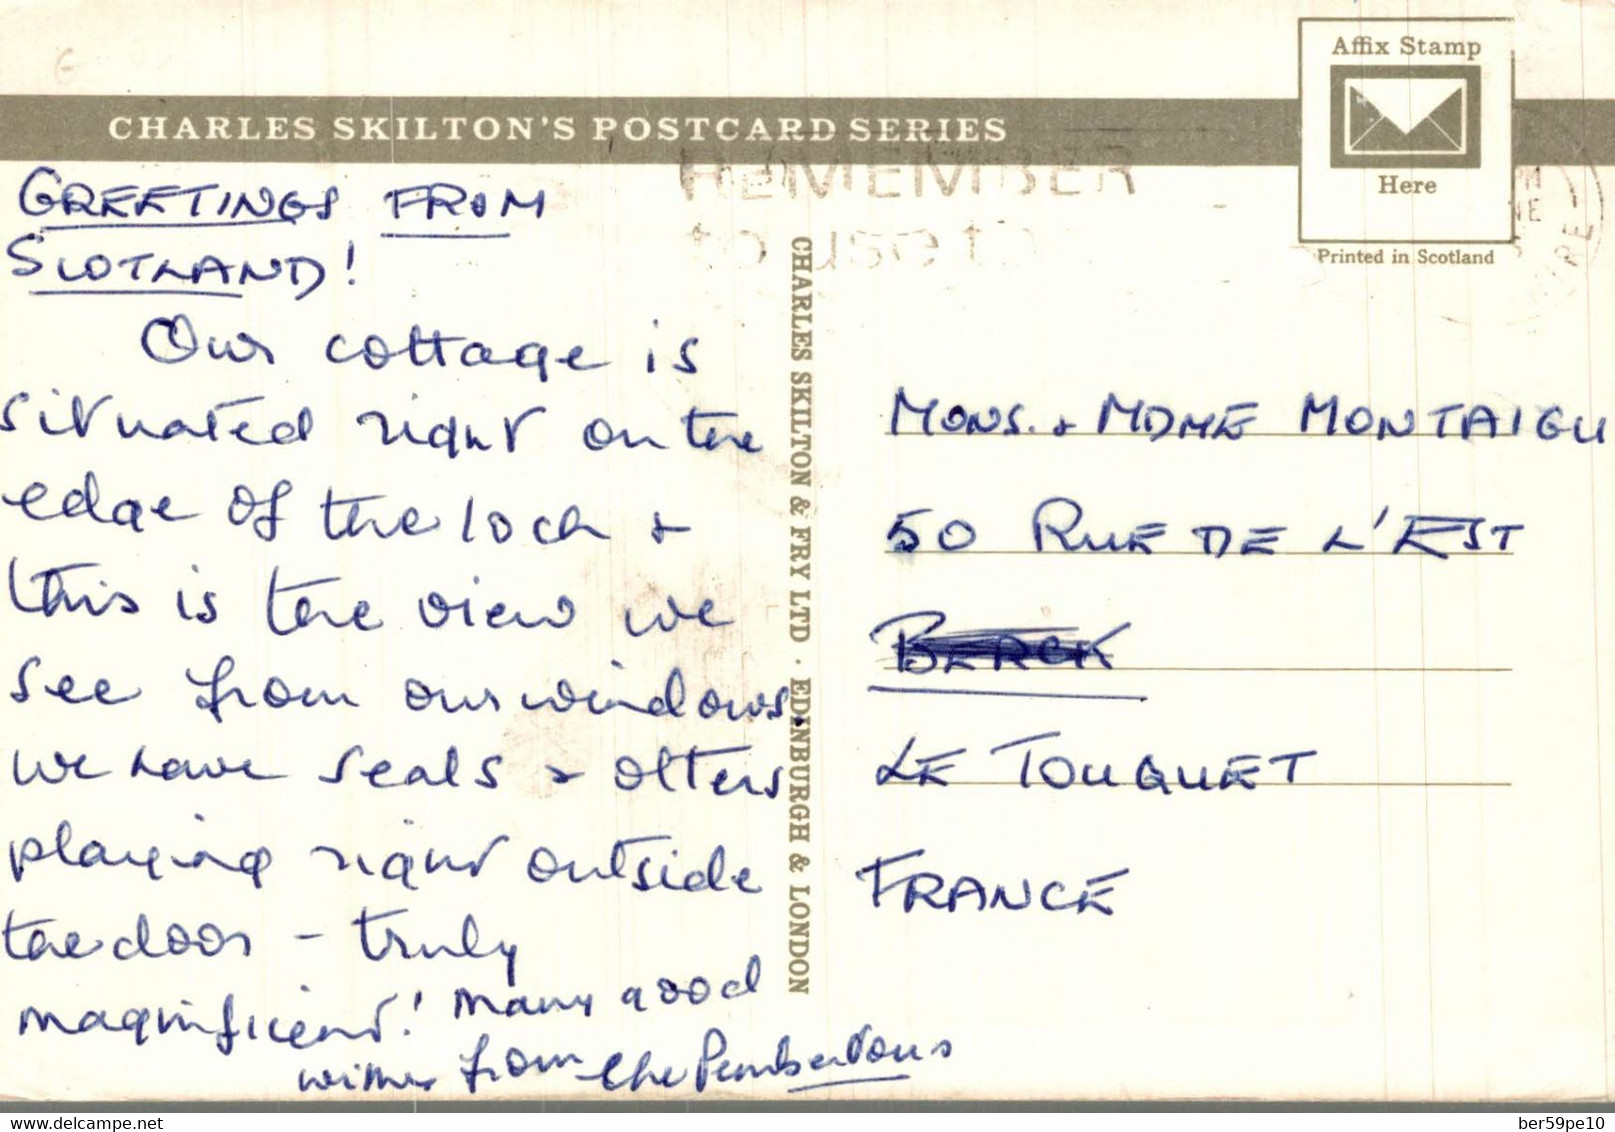 Affix Stamp
Here
Printed in Scotland
CHARLES SKILTON'S POSTCARD SERIES
REMEMBER
to use t
GREETINGS FROM
SCOTLAND!
Our cottage is
situated right on the
edge of the loch &
this is the view we
see from our windows.
We have seals & otters
playing right outside
the door – truly
magnificent! Many good
wishes from the Pembertons
CHARLES SKILTON & FRY LTD · EDINBURGH & LONDON
MONS. & MDME MONTAIGU
50 RUE DE L'EST
BERCK
LE TOUQUET
FRANCE
delcampe.net
ber59pe10